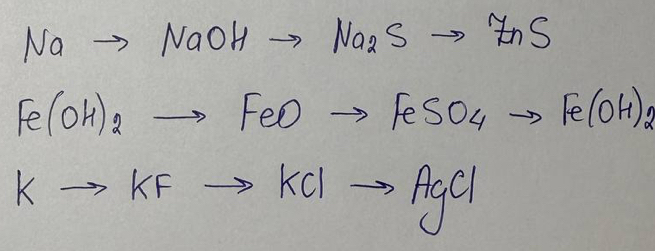 Na → NaOH → Na₂S → ZnS
Fe(OH)₂ → FeO → FeSO₄ → Fe(OH)₂
K → KF → KCl → AgCl